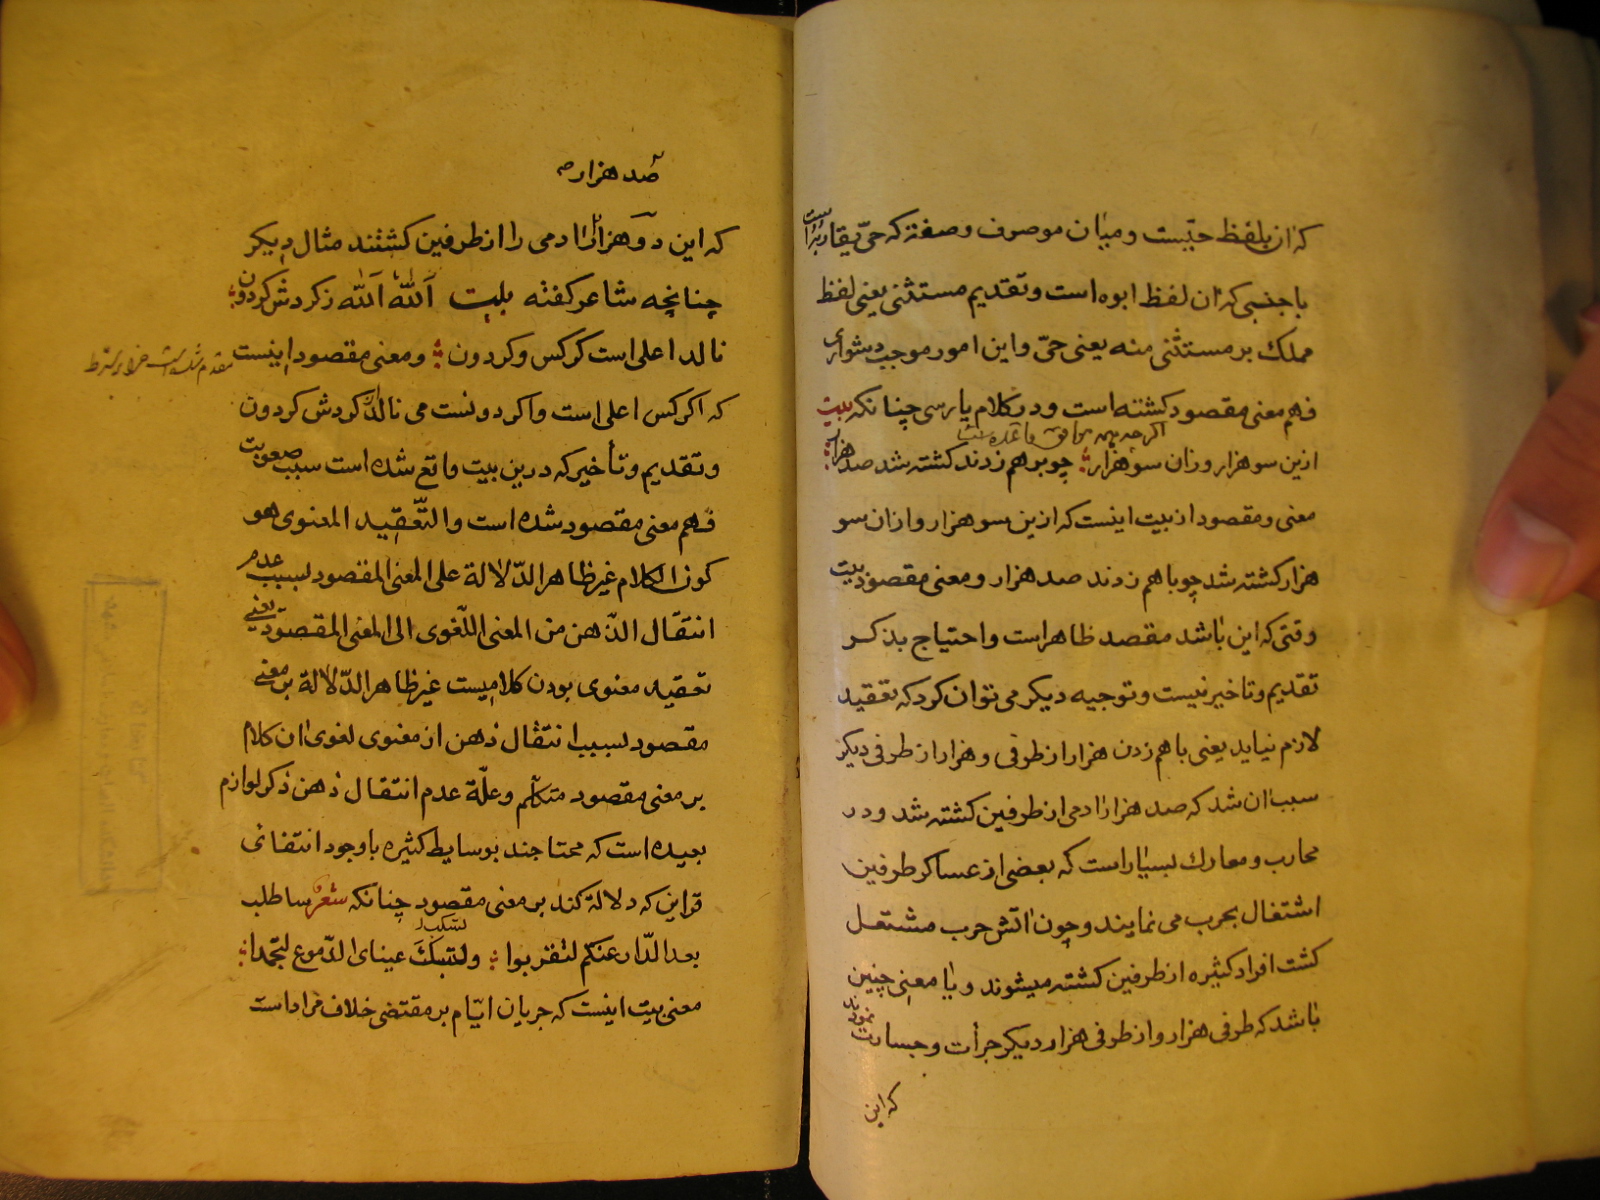 که ان بلفظ حیّیست و میان موصوف و صفة که حیّ یقاربه است
با جنبی که ان لفظ ابوه است و تقدیم مستثنی یعنی لفظ
مملک بر مستثنی منه یعنی حیّ و این امور موجب دشواری
فهم معنی مقصود کشته است و در کلام پارسی چنانکه بیت
اکرچه
ازین سو هزار وزان سو هزار چو برهم زدند کشته شد صد هزار
معنی و مقصود از بیت اینست که ازین سو هزار و ازان سو
هزار کشته شد چو با هم زدند صد هزار و معنی مقصود بیت
وقتی که این باشد مقصد ظاهر است و احتیاج بذکر
تقدیم و تاخیر نیست و توجیه دیکر می توان کرد که تعقید
لازم نیاید یعنی باهم زدن هزار از طرفی و هزار از طرفی دیکر
سبب ان شد که صد هزار ادمی از طرفین کشته شد و در
محارب و معارک بسیار است که بعضی از عساکر طرفین
اشتغال بحرب می نمایند و چون اتش حرب مشتعل
کشت افراد کثیره از طرفین کشته میشوند و یا معنی چنین
باشد که طرفی هزار و از طرفی هزار دیکر جرأت و جسارت نمودند
که این
صد هزار
که این دو هزار ادمی را از طرفین کشتند مثال دیکر
چنانچه شاعر کفته بیت اَللّٰه اَللّٰه ز کردش کردون
نالد اعلی است کرکس و کردون و معنی مقصود اینست
که اکر کس اعلی است و اکر دونست می نالد از کردش کردون
و تقدیم و تأخیر که درین بیت واقع شده است سبب صعوبت
فهم معنی مقصود شده است و التّعقید المعنوی هو
کون الکلام غیر ظاهر الدّلالة علی المعنی المقصود بسبب عدم
انتقال الذّهن من المعنی اللّغوی الی المعنی المقصود یعنی
تعقید معنوی بودن کلامیست غیر ظاهر الدّلالة بر معنی
مقصود بسبب انتقال ذهن از معنوی لغوی ان کلام
بر معنی مقصود متکلم و علّة عدم انتقال ذهن ذکر لوازم
بعیده است که محتاجند بوسایط کثیره با وجود انتفائی
قراین که دلالة کند بر معنی مقصود چنانکه شعر ساطلب
بعد الدّار عنکم لتقربوا ولتسکب عینای الدّموع لتجمدا
معنی بیت اینست که جریان ایّام بر مقتضی خلاف مراد است